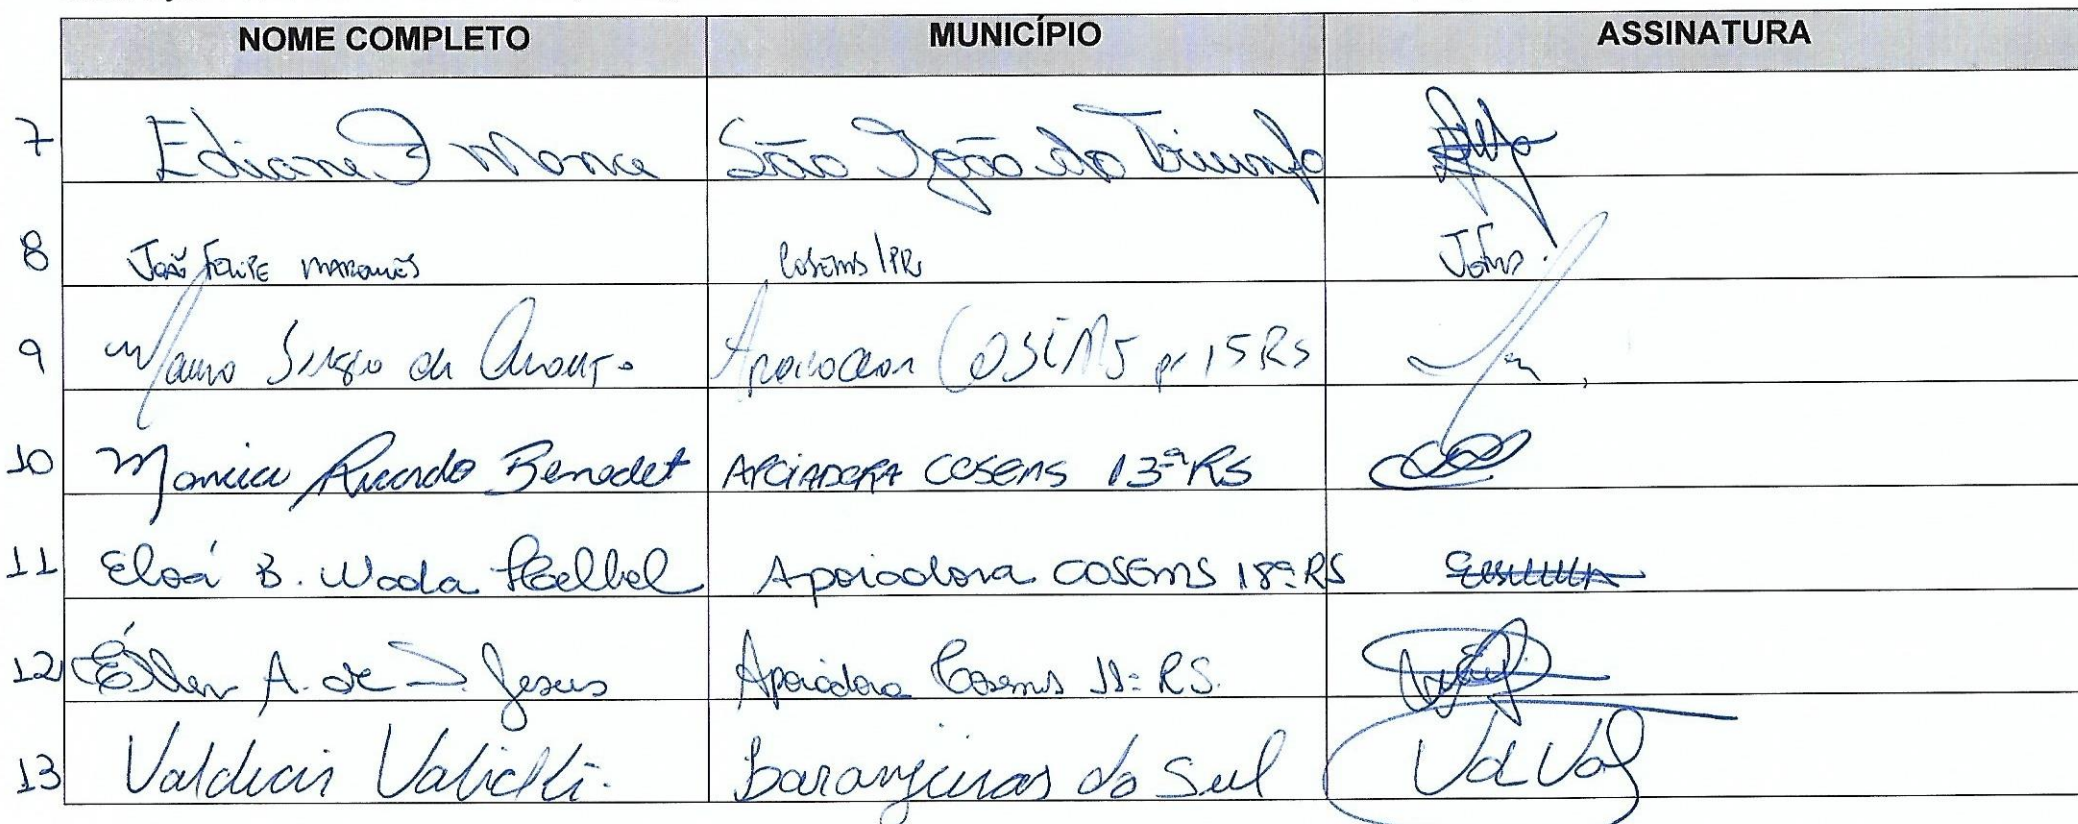 NOME COMPLETO MUNICÍPIO ASSINATURA
7 Ediane São João do Triunfo
8 João Felipe Marques Cosems/PR
9 Mauro Sergio de Apoiador COSEMS pr 15 RS
10 Ricardo Benedet APOIADORA COSEMS 13ª RS
11 Eloá B. Wada Apoiadora COSEMS 18ª RS
12 Éllen A. de S. Jesus Apoiadora Cosems 11ª RS.
13 Valdecir Laranjeiras do Sul